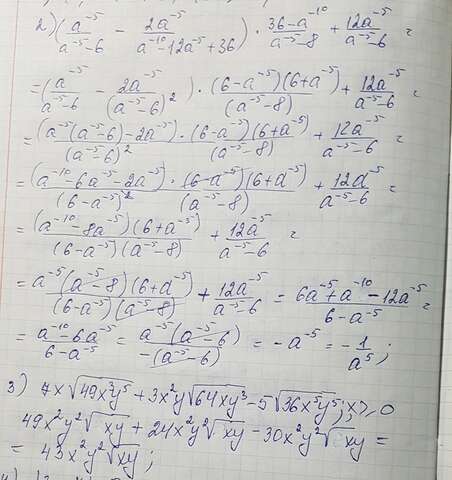 2) (a⁻⁵/(a⁻⁵-6) - 2a⁻⁵/(a⁻¹⁰-12a⁻⁵+36)) · (36-a⁻¹⁰)/(a⁻⁵-8) + 12a⁻⁵/(a⁻⁵-6) =
= (a⁻⁵/(a⁻⁵-6) - 2a⁻⁵/(a⁻⁵-6)²) · (6-a⁻⁵)(6+a⁻⁵)/(a⁻⁵-8) + 12a⁻⁵/(a⁻⁵-6) =
= (a⁻⁵(a⁻⁵-6)-2a⁻⁵)/(a⁻⁵-6)² · (6-a⁻⁵)(6+a⁻⁵)/(a⁻⁵-8) + 12a⁻⁵/(a⁻⁵-6) =
= (a⁻¹⁰-6a⁻⁵-2a⁻⁵)/(6-a⁻⁵)² · (6-a⁻⁵)(6+a⁻⁵)/(a⁻⁵-8) + 12a⁻⁵/(a⁻⁵-6) =
= (a⁻¹⁰-8a⁻⁵)(6+a⁻⁵)/((6-a⁻⁵)(a⁻⁵-8)) + 12a⁻⁵/(a⁻⁵-6) =
= a⁻⁵(a⁻⁵-8)(6+a⁻⁵)/((6-a⁻⁵)(a⁻⁵-8)) + 12a⁻⁵/(a⁻⁵-6) = (6a⁻⁵+a⁻¹⁰-12a⁻⁵)/(6-a⁻⁵) =
= (a⁻¹⁰-6a⁻⁵)/(6-a⁻⁵) = a⁻⁵(a⁻⁵-6)/(-(a⁻⁵-6)) = -a⁻⁵ = -1/a⁵;
3) 7x√(49x³y⁵) + 3x²y√(64xy³) - 5√(36x⁵y⁵); x≥0
49x²y²√xy + 24x²y²√xy - 30x²y²√xy =
= 43x²y²√xy;